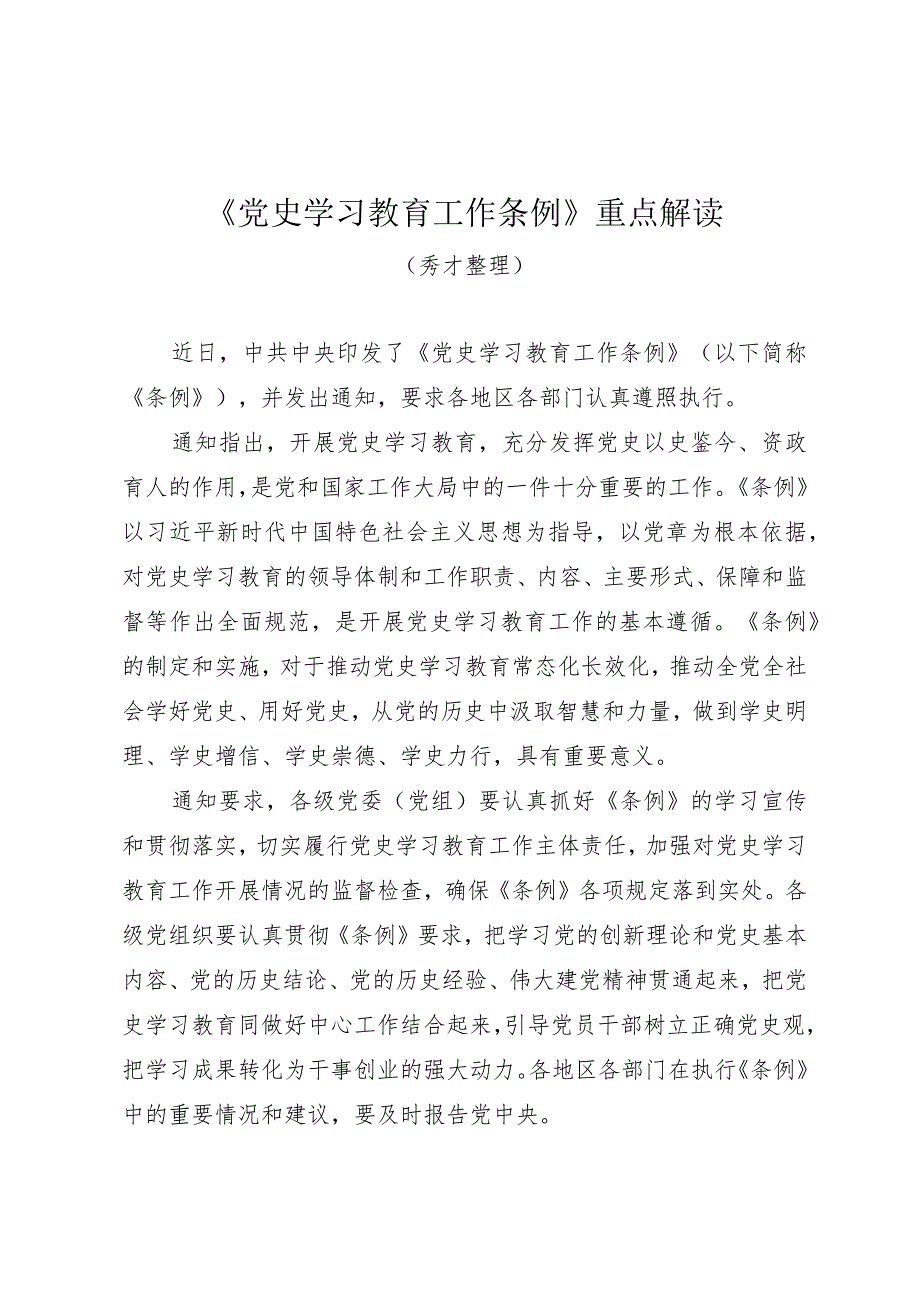 《党史学习教育工作条例》重点解读
（秀才整理）
近日，中共中央印发了《党史学习教育工作条例》（以下简称
《条例》），并发出通知，要求各地区各部门认真遵照执行。
通知指出，开展党史学习教育，充分发挥党史以史鉴今、资政
育人的作用，是党和国家工作大局中的一件十分重要的工作。《条例》
以习近平新时代中国特色社会主义思想为指导，以党章为根本依据，
对党史学习教育的领导体制和工作职责、内容、主要形式、保障和监
督等作出全面规范，是开展党史学习教育工作的基本遵循。《条例》
的制定和实施，对于推动党史学习教育常态化长效化，推动全党全社
会学好党史、用好党史，从党的历史中汲取智慧和力量，做到学史明
理、学史增信、学史崇德、学史力行，具有重要意义。
通知要求，各级党委（党组）要认真抓好《条例》的学习宣传
和贯彻落实，切实履行党史学习教育工作主体责任，加强对党史学习
教育工作开展情况的监督检查，确保《条例》各项规定落到实处。各
级党组织要认真贯彻《条例》要求，把学习党的创新理论和党史基本
内容、党的历史结论、党的历史经验、伟大建党精神贯通起来，把党
史学习教育同做好中心工作结合起来，引导党员干部树立正确党史观，
把学习成果转化为干事创业的强大动力。各地区各部门在执行《条例》
中的重要情况和建议，要及时报告党中央。